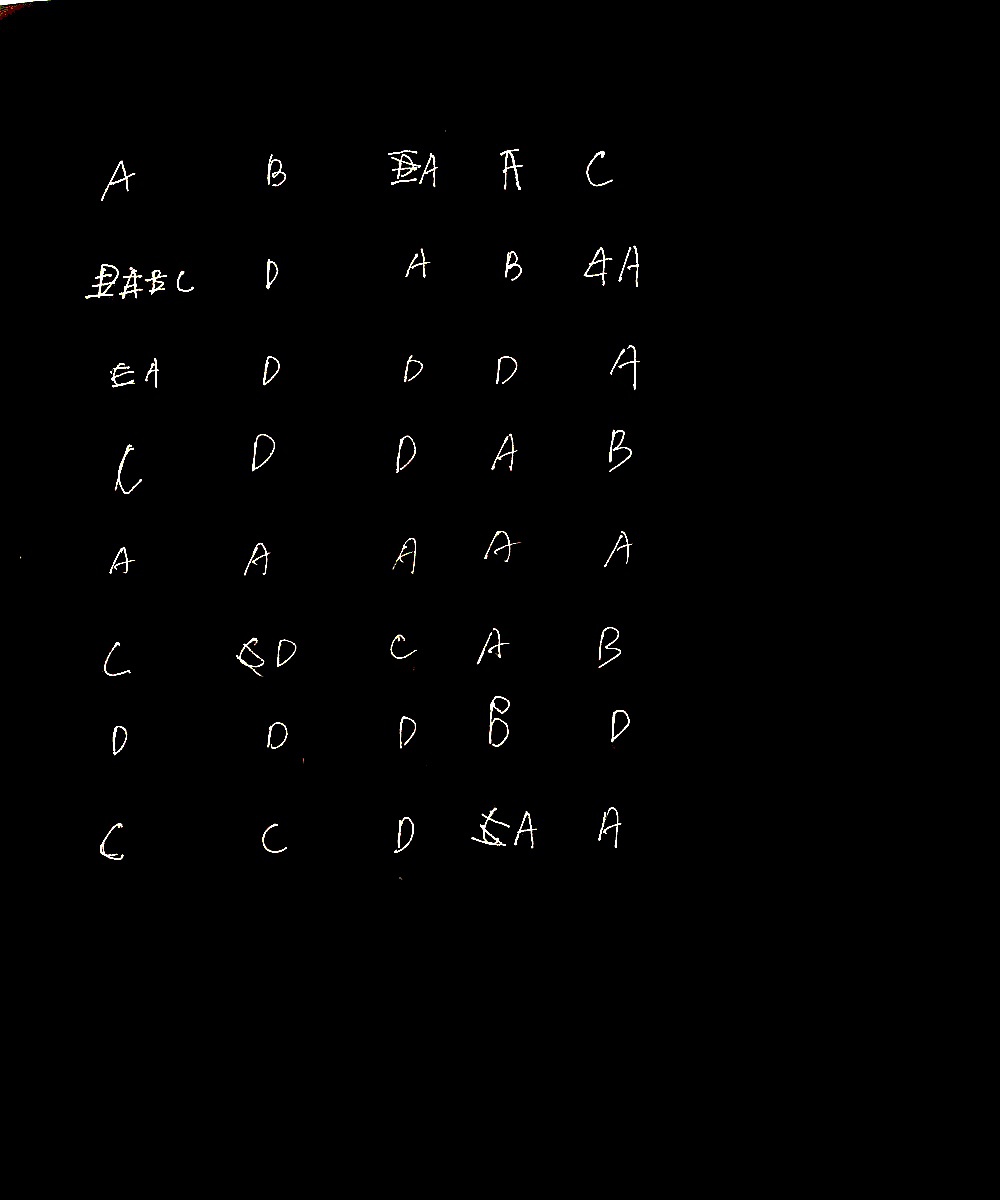 A B A A C
C D A B A
A D D D A
C D D A B
A A A A A
C D C A B
D D D B D
C C D A A